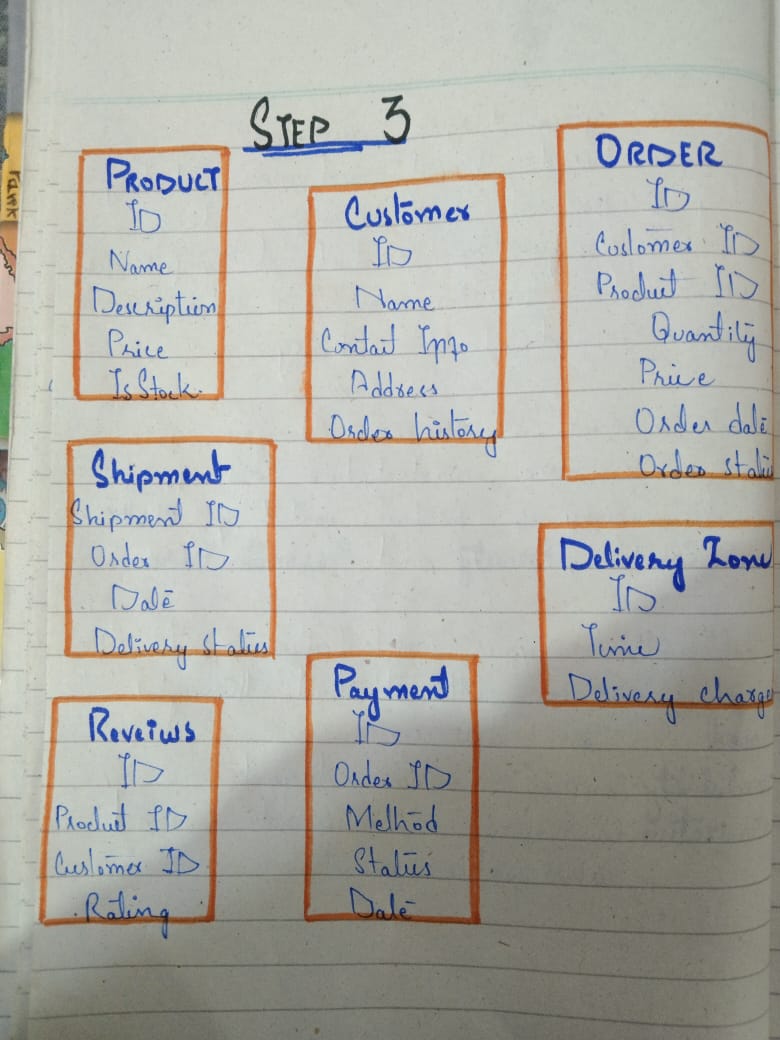 STEP 3
PRODUCT
ID
Name
Description
Price
Is Stock.
Customer
ID
Name
Contact Info
Address
Order history
ORDER
ID
Customer ID
Product ID
Quantity
Price
Order date
Order status
Shipment
Shipment ID
Order ID
Date
Delivery status
Delivery Zone
ID
Time
Delivery charge
Payment
ID
Order ID
Method
Status
Date
Reveiws
ID
Product ID
Customer ID
Rating